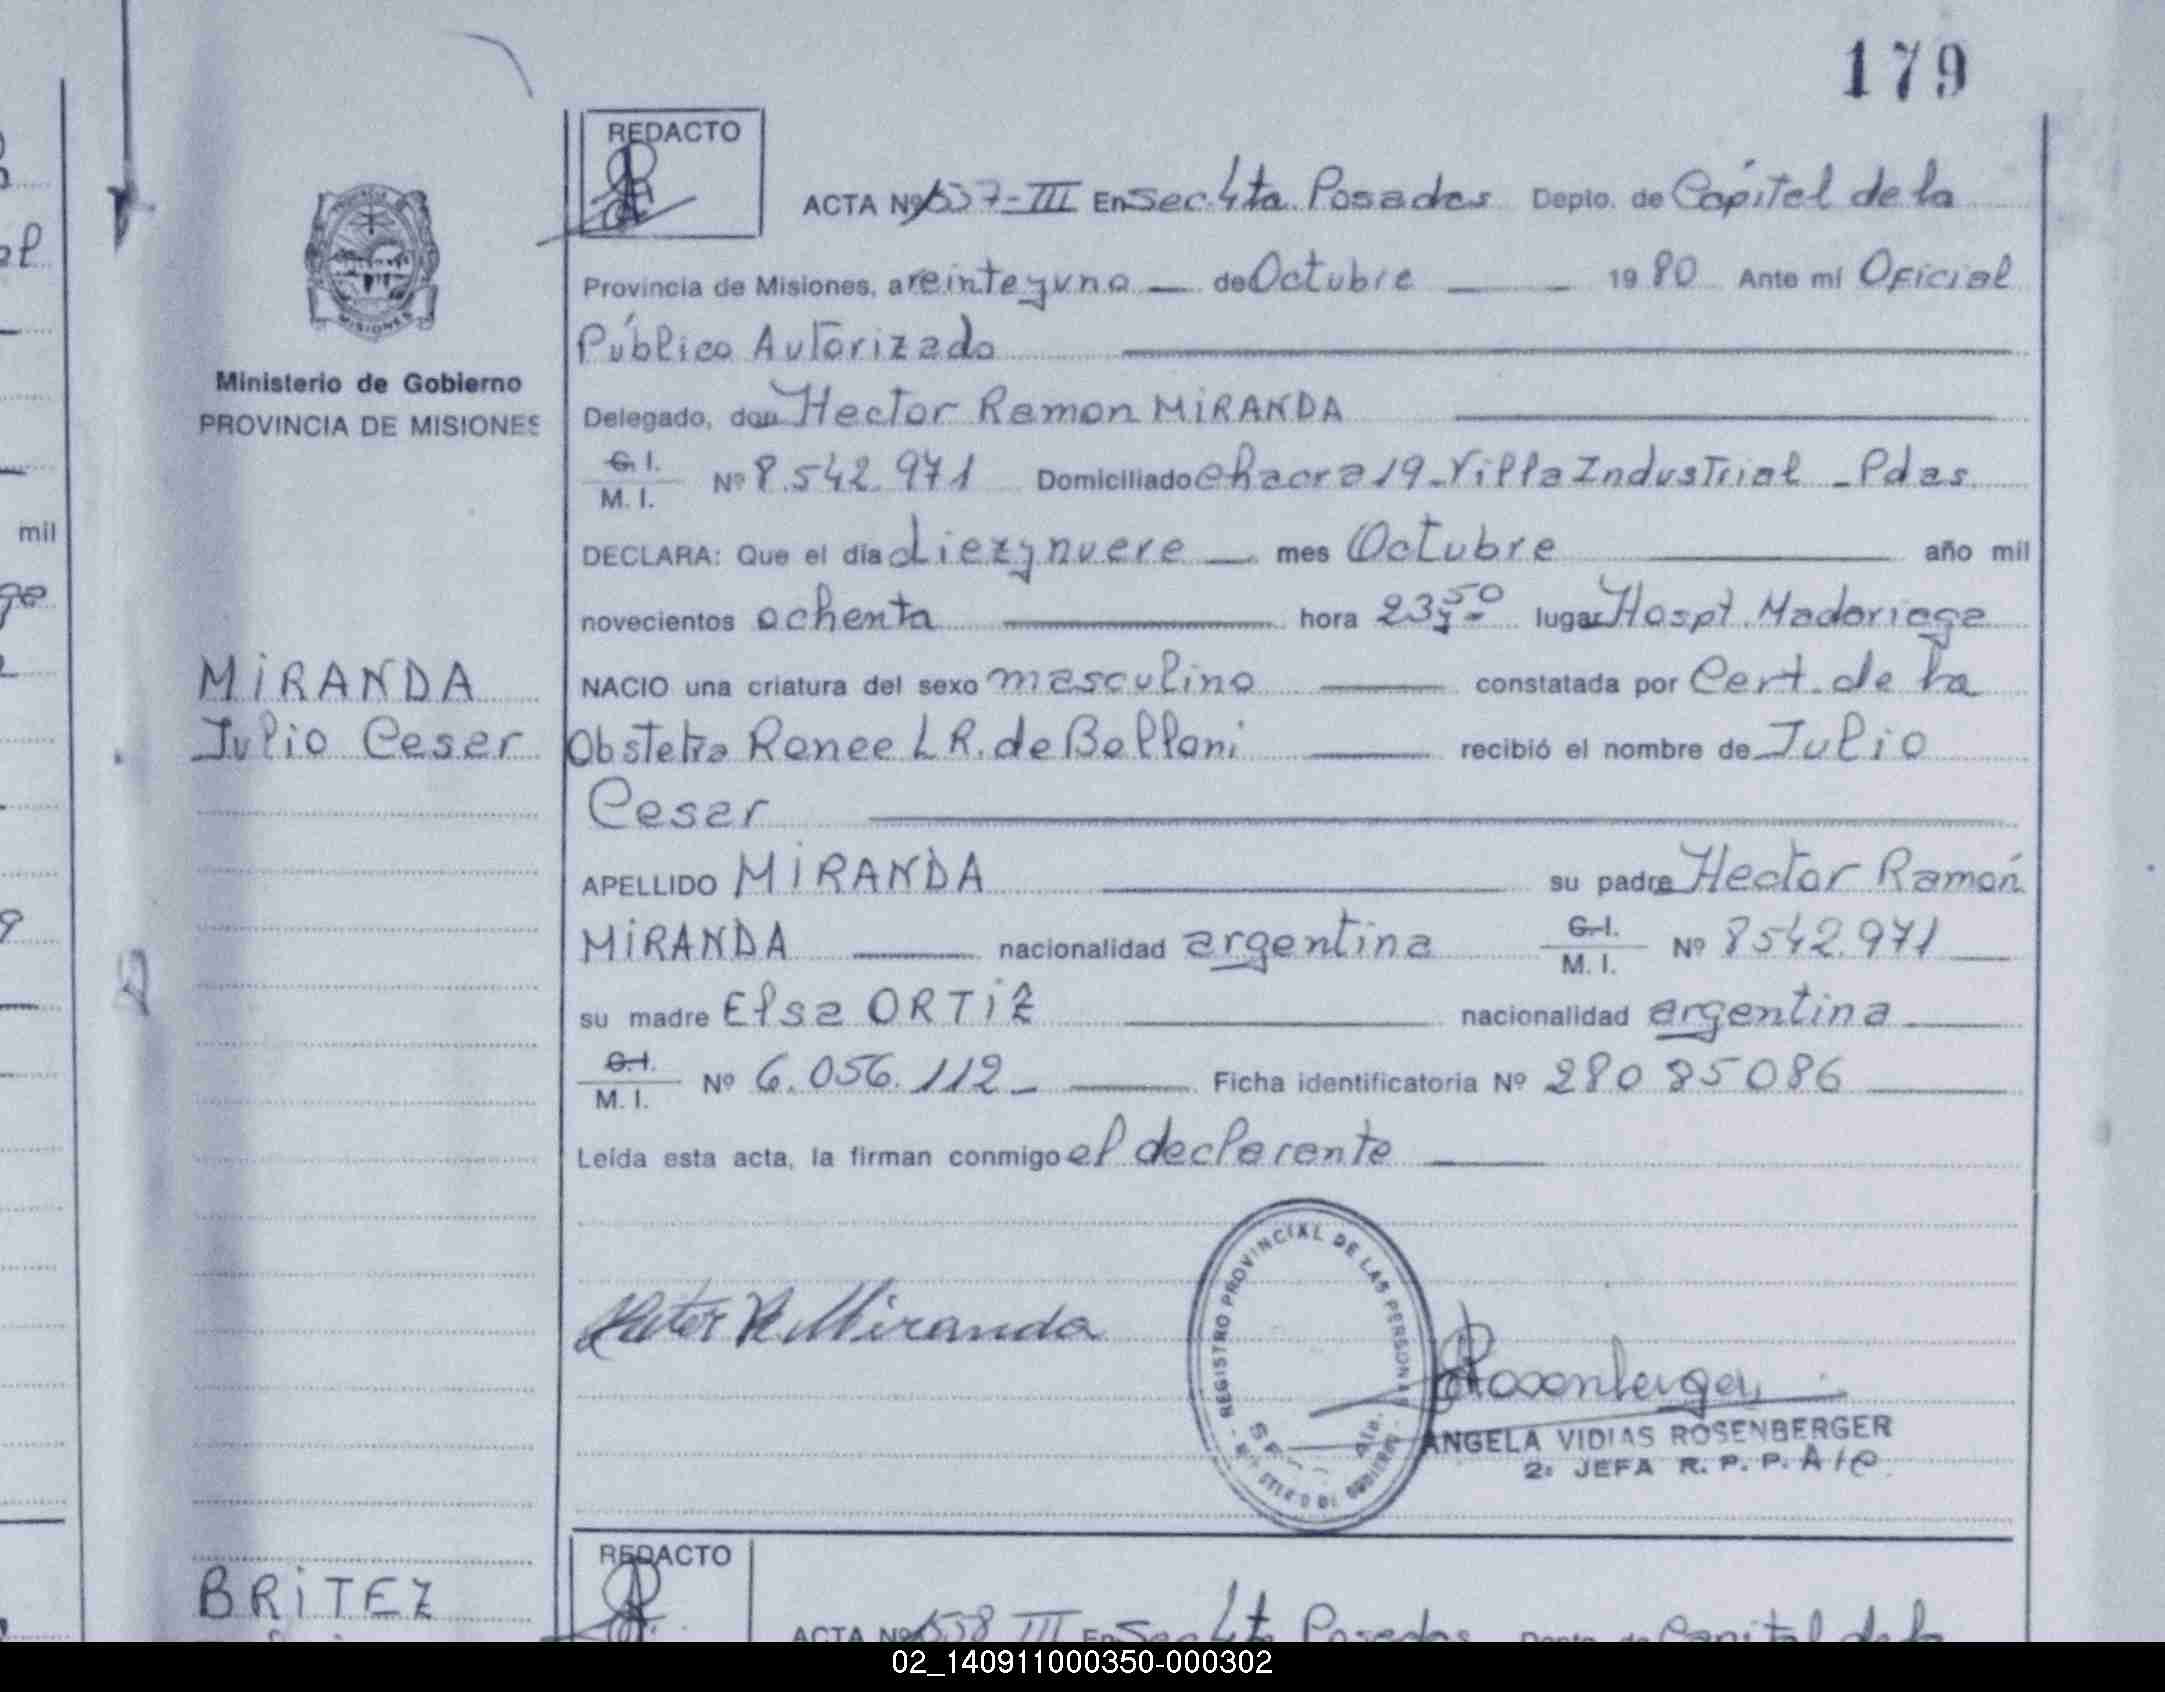 179
REDACTO
ACTA Nº 1537-III En Sec. 4ta. Posadas Depto. de Capital de la
Provincia de Misiones, a veinteyuno — de Octubre — 1980 Ante mí Oficial
Público Autorizado
Ministerio de Gobierno
PROVINCIA DE MISIONES
Delegado, don Hector Ramon MIRANDA
C.I.
M. I. Nº 8.542.971 Domiciliado Chacra 19-Villa Industrial - Pdas.
DECLARA: Que el día diezynueve — mes Octubre — año mil
novecientos ochenta — hora 23,50 lugar Hospt. Madariaga
MIRANDA
Julio Cesar
NACIO una criatura del sexo masculino — constatada por Cert. de la
Obstetra Renee L R. de Bolloni — recibió el nombre de Julio
Cesar
APELLIDO MIRANDA — su padre Hector Ramón
MIRANDA — nacionalidad argentina C.I.
M. I. Nº 8542.971
su madre Elsa ORTIZ — nacionalidad argentina
C.I.
M. I. Nº 6.056.112 — Ficha identificatoria Nº 28085086
Leída esta acta, la firman conmigo el declarante
Hector R Miranda
REGISTRO PROVINCIAL DE LAS PERSONAS
Rosenberger
ANGELA VIDIAS ROSENBERGER
2º JEFA R. P. P. Ate.
BRITEZ
REDACTO
ACTA Nº 1538 III En Sec 4ta Posadas Depto. de Capital de la
mil
MISIONES
02_140911000350-000302